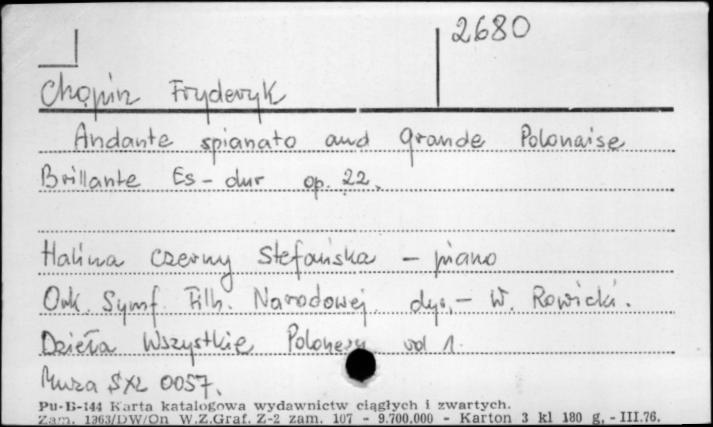 2680
Chopin Fryderyk
Andante spianato and Grande Polonaise
Brillante Es-dur op. 22.
Halina Czerny Stefańska - piano
Ork. Symf. Filh. Narodowej dyr. - W. Rowicki.
Dzieła Wszystkie Polonezy vol 1.
Muza SXL 0057.
Pu-B-144 Karta katalogowa wydawnictw ciągłych i zwartych.
Zam. 1363/DW/On W.Z.Graf. Z-2 zam. 107 - 9.700,000 - Karton 3 kl 180 g, - III.76.